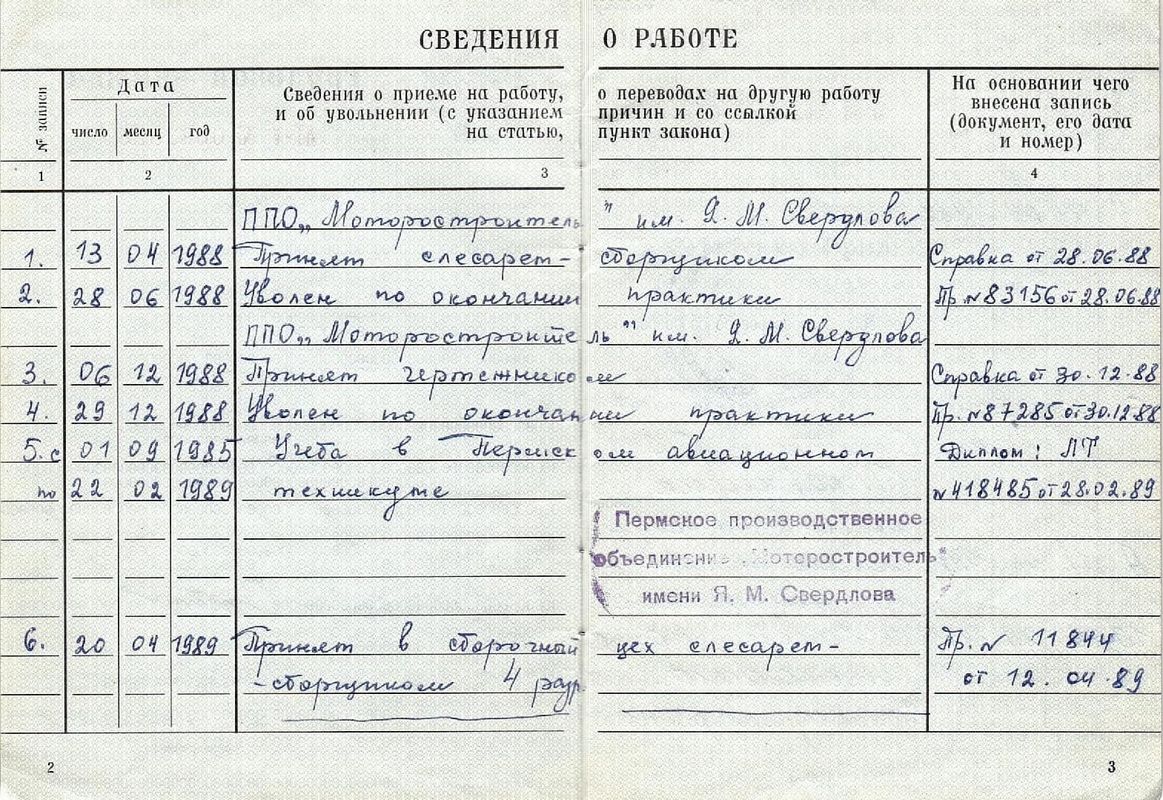 СВЕДЕНИЯ О РАБОТЕ
№ записи
Дата
число месяц год
Сведения о приеме на работу, о переводах на другую работу
и об увольнении (с указанием причин и со ссылкой
на статью, пункт закона)
На основании чего
внесена запись
(документ, его дата
и номер)
1 2 3 4
ППО „Моторостроитель" им. Я. М. Свердлова
1. 13 04 1988 Принят слесарем-сборщиком Справка от 28.06.88
2. 28 06 1988 Уволен по окончании практики Пр. №83156 от 28.06.88
ППО „Моторостроитель" им. Я. М. Свердлова
3. 06 12 1988 Принят чертежником Справка от 30.12.88
4. 29 12 1988 Уволен по окончании практики Пр. №87285 от 30.12.88
5. с 01 09 1985 Учеба в Пермском авиационном Диплом: ЛТ
по 22 02 1989 техникуме №418485 от 28.02.89
Пермское производственное
объединение „Моторостроитель"
имени Я. М. Свердлова
6. 20 04 1989 Принят в сборочный цех слесарем- Пр. № 11844
-сборщиком 4 разр. от 12.04.89
2 3